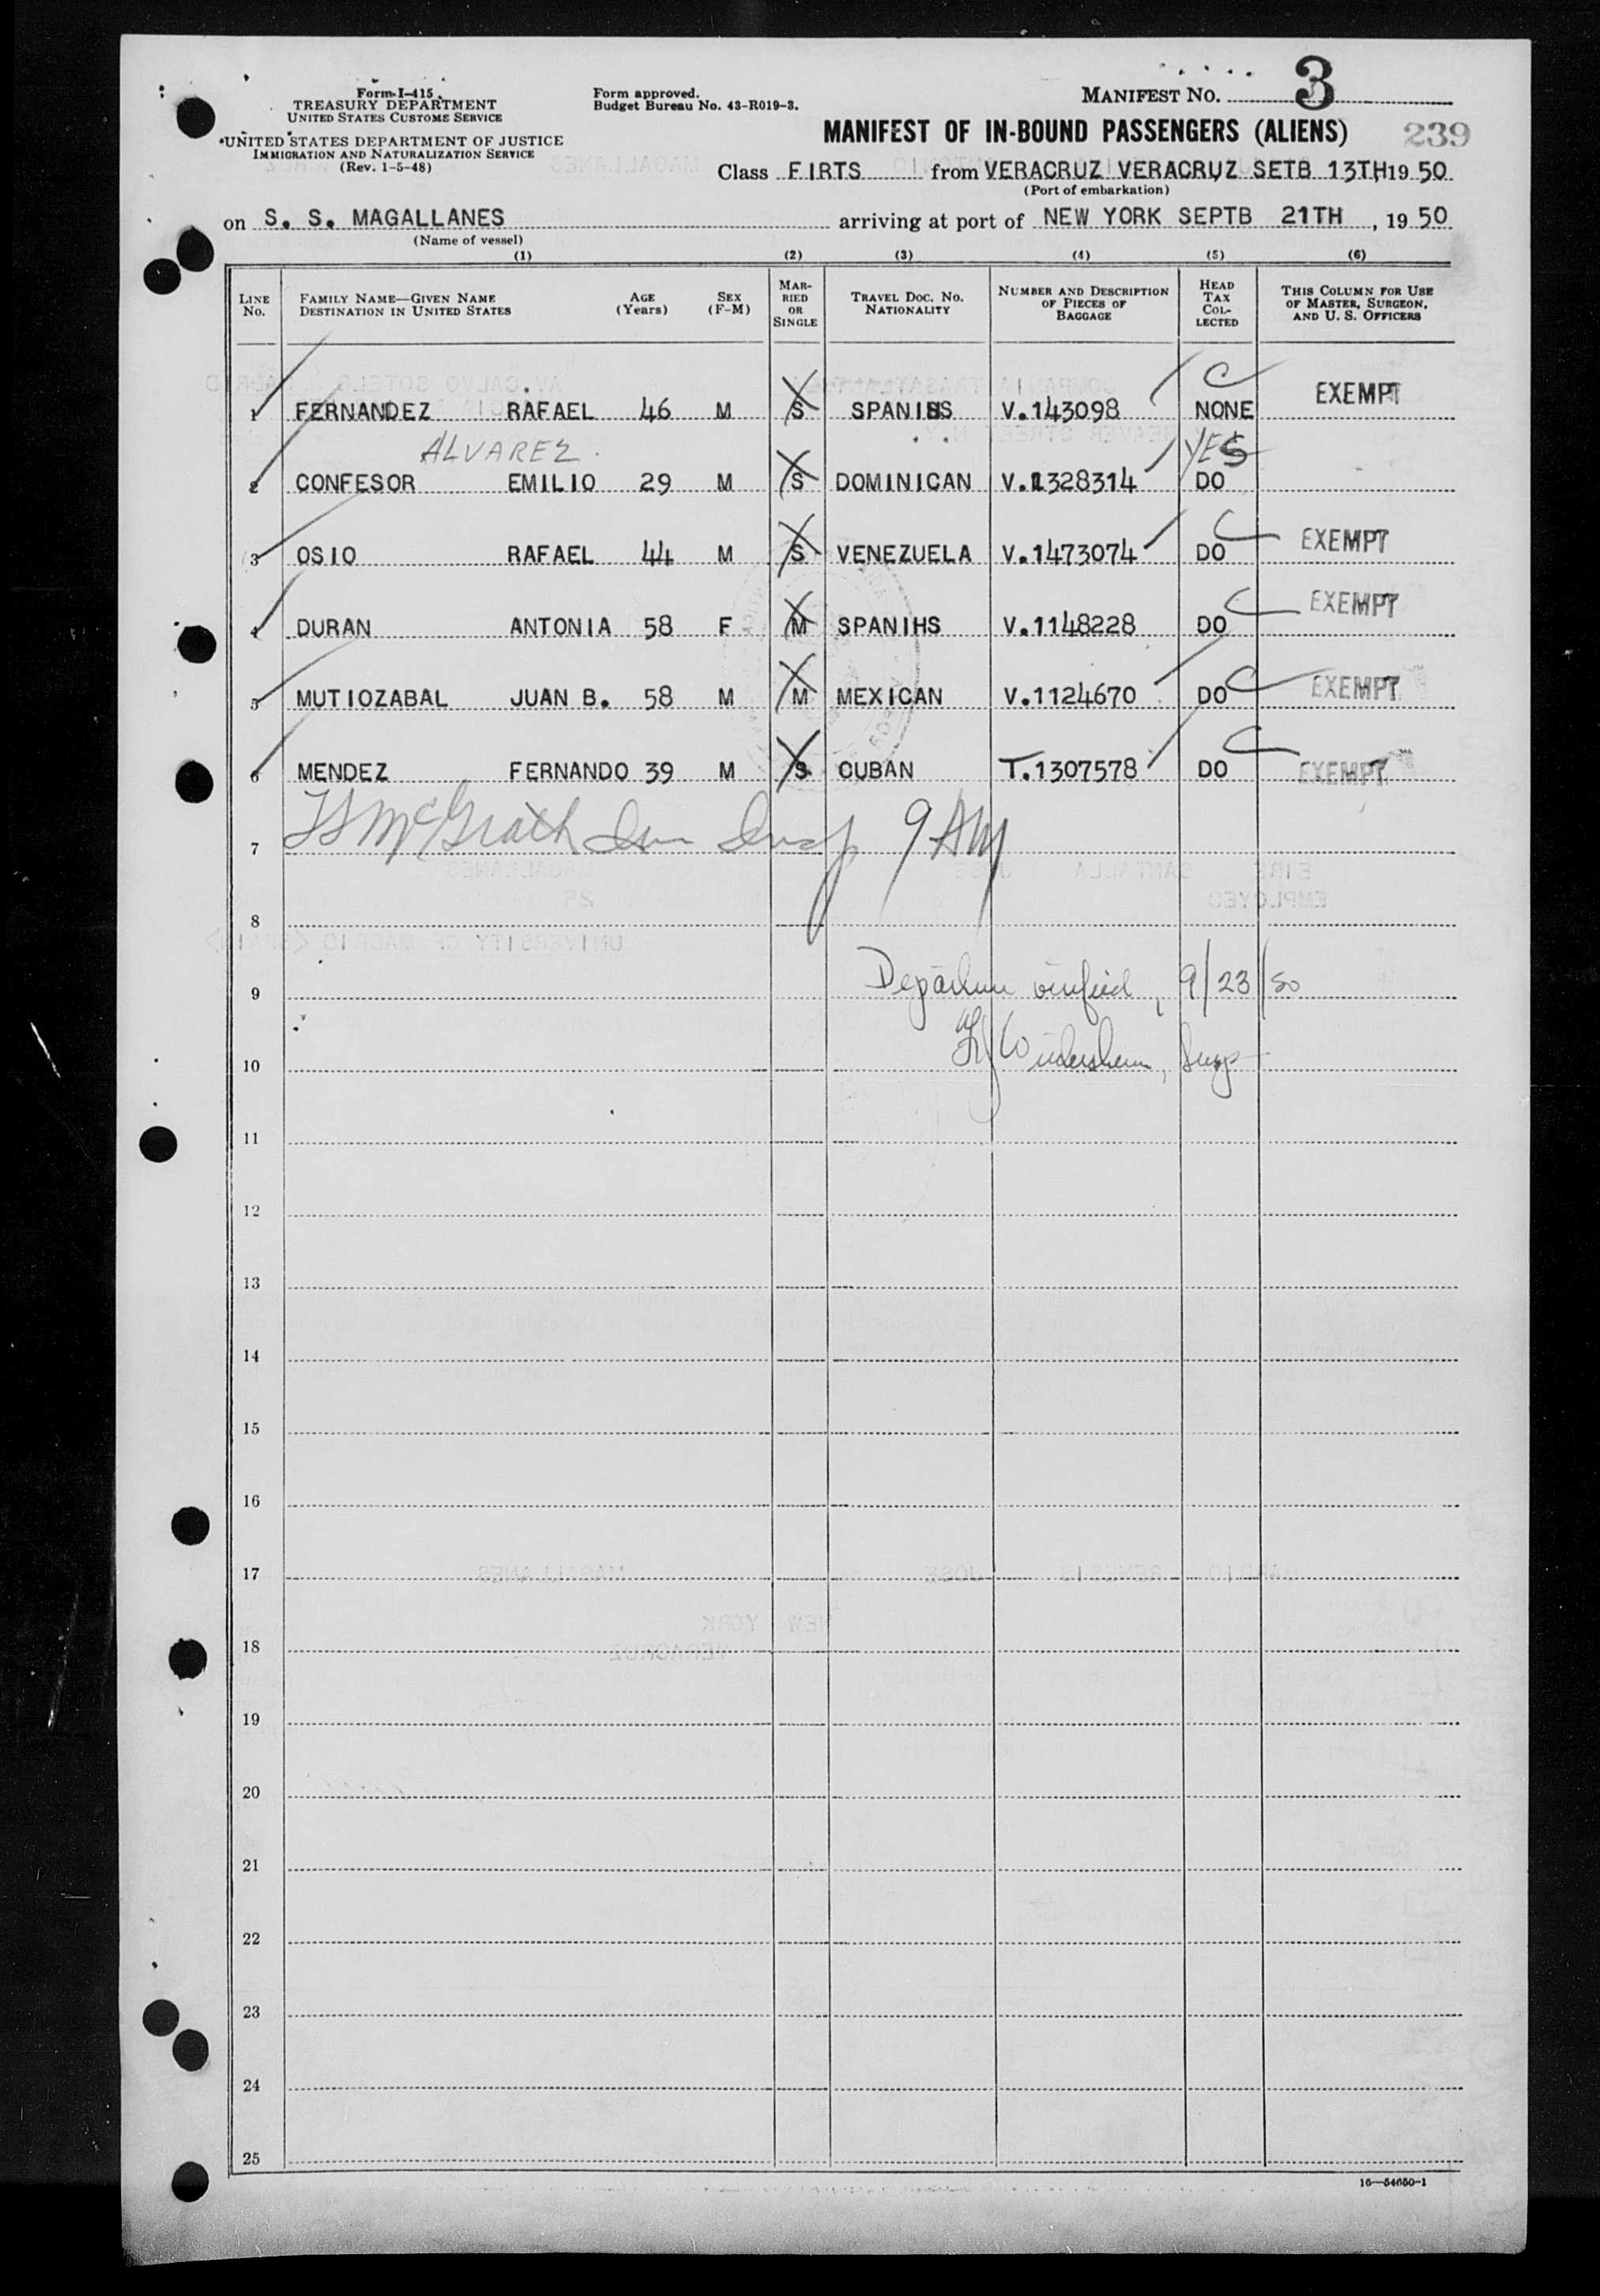 Form I-415
TREASURY DEPARTMENT
UNITED STATES CUSTOMS SERVICE
UNITED STATES DEPARTMENT OF JUSTICE
IMMIGRATION AND NATURALIZATION SERVICE
(Rev. 1-5-48)
Form approved.
Budget Bureau No. 43-R019-3.
MANIFEST NO. 3
MANIFEST OF IN-BOUND PASSENGERS (ALIENS) 239
Class FIRTS from VERACRUZ VERACRUZ SETB 13TH 19 50
(Port of embarkation)
on S. S. MAGALLANES arriving at port of NEW YORK SEPTB 21TH, 19 50
(Name of vessel)
(1) (2) (3) (4) (5) (6)
LINE NO. FAMILY NAME—GIVEN NAME DESTINATION IN UNITED STATES AGE (Years) SEX (F-M) MARRIED OR SINGLE TRAVEL DOC. NO. NATIONALITY NUMBER AND DESCRIPTION OF PIECES OF BAGGAGE HEAD TAX COLLECTED THIS COLUMN FOR USE OF MASTER, SURGEON, AND U. S. OFFICERS
1 FERNANDEZ RAFAEL 46 M S SPANIHS V.143098 C NONE EXEMPT
ALVAREZ YES
2 CONFESOR EMILIO 29 M S DOMINICAN V.1328314 DO
3 OSIO RAFAEL 44 M S VENEZUELA V.1473074 DO C EXEMPT
4 DURAN ANTONIA 58 F M SPANIHS V.1148228 DO C EXEMPT
5 MUTIOZABAL JUAN B. 58 M M MEXICAN V.1124670 DO C EXEMPT
6 MENDEZ FERNANDO 39 M S CUBAN T.1307578 DO C EXEMPT
7 McGrath Imm Insp 9 AM
8
9 Departure verified, 9/23/50
10 Insp
11
12
13
14
15
16
17
18
19
20
21
22
23
24
25
16—54650-1